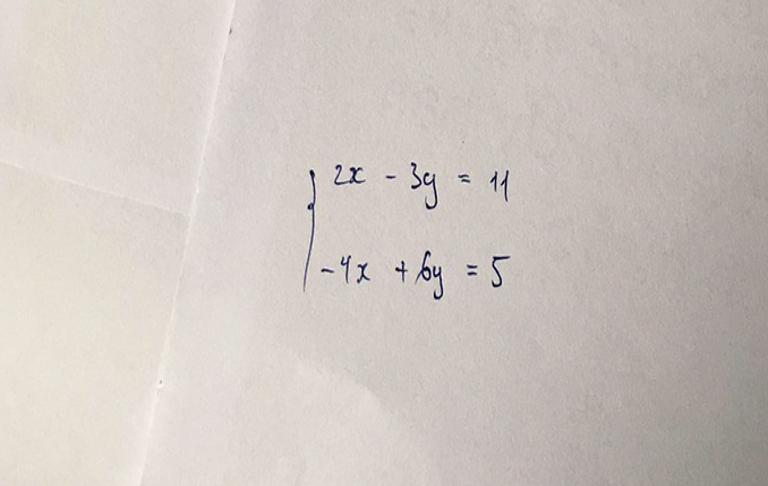 2x - 3y = 11
-4x + 6y = 5